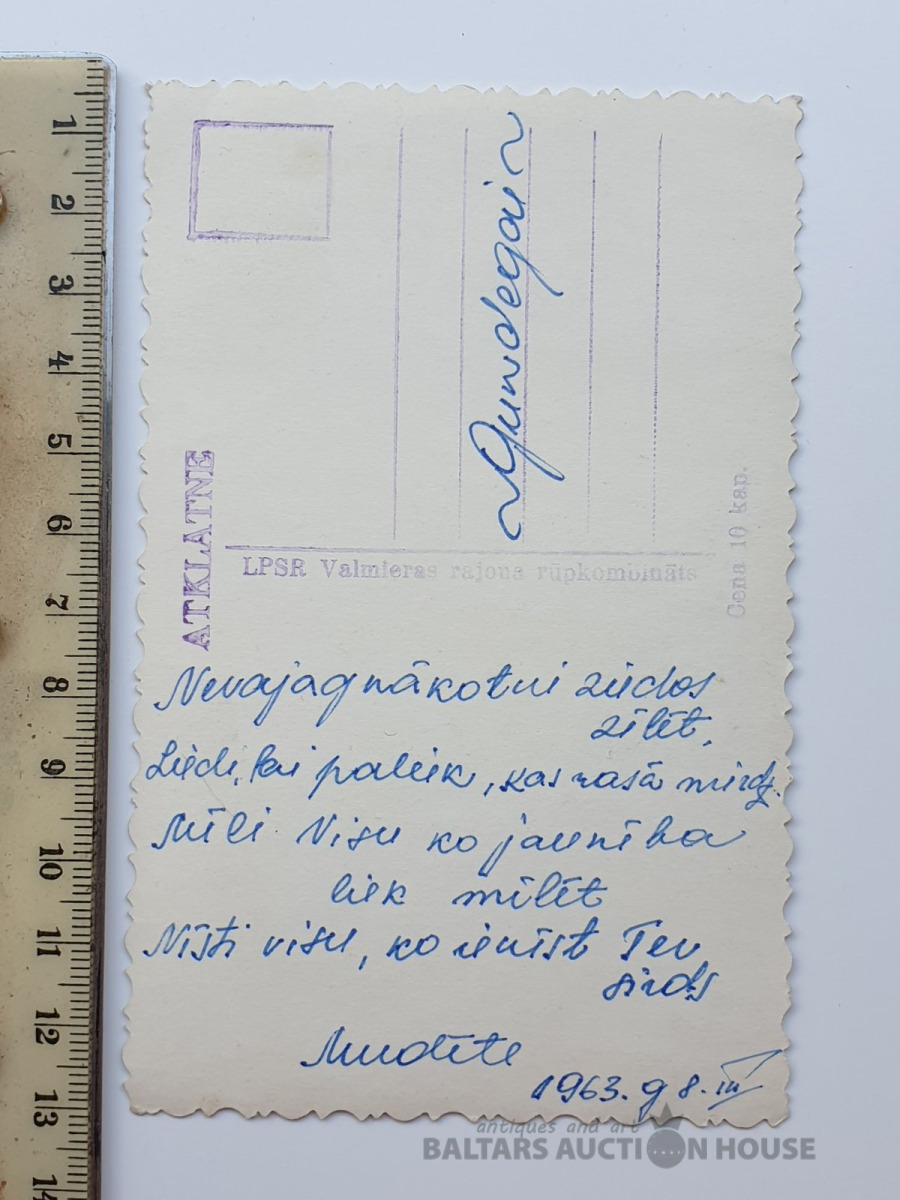 ATKLATNE
LPSR Valmieras rajona rūpkombināts
Cena 10 kap.
Gundegai
Nevajag nākotni ziedos
zīlēt,
Ziedi, lai paliek, kas rasā mirdz.
Mīli Visu ko jaunība
liek mīlēt
Nīsti visu, ko ienīst Tev
sirds
Mudīte
1963. g 8. III
1
2
3
4
5
6
7
8
9
10
11
12
13
14
antiques and art
BALTARS AUCTION HOUSE